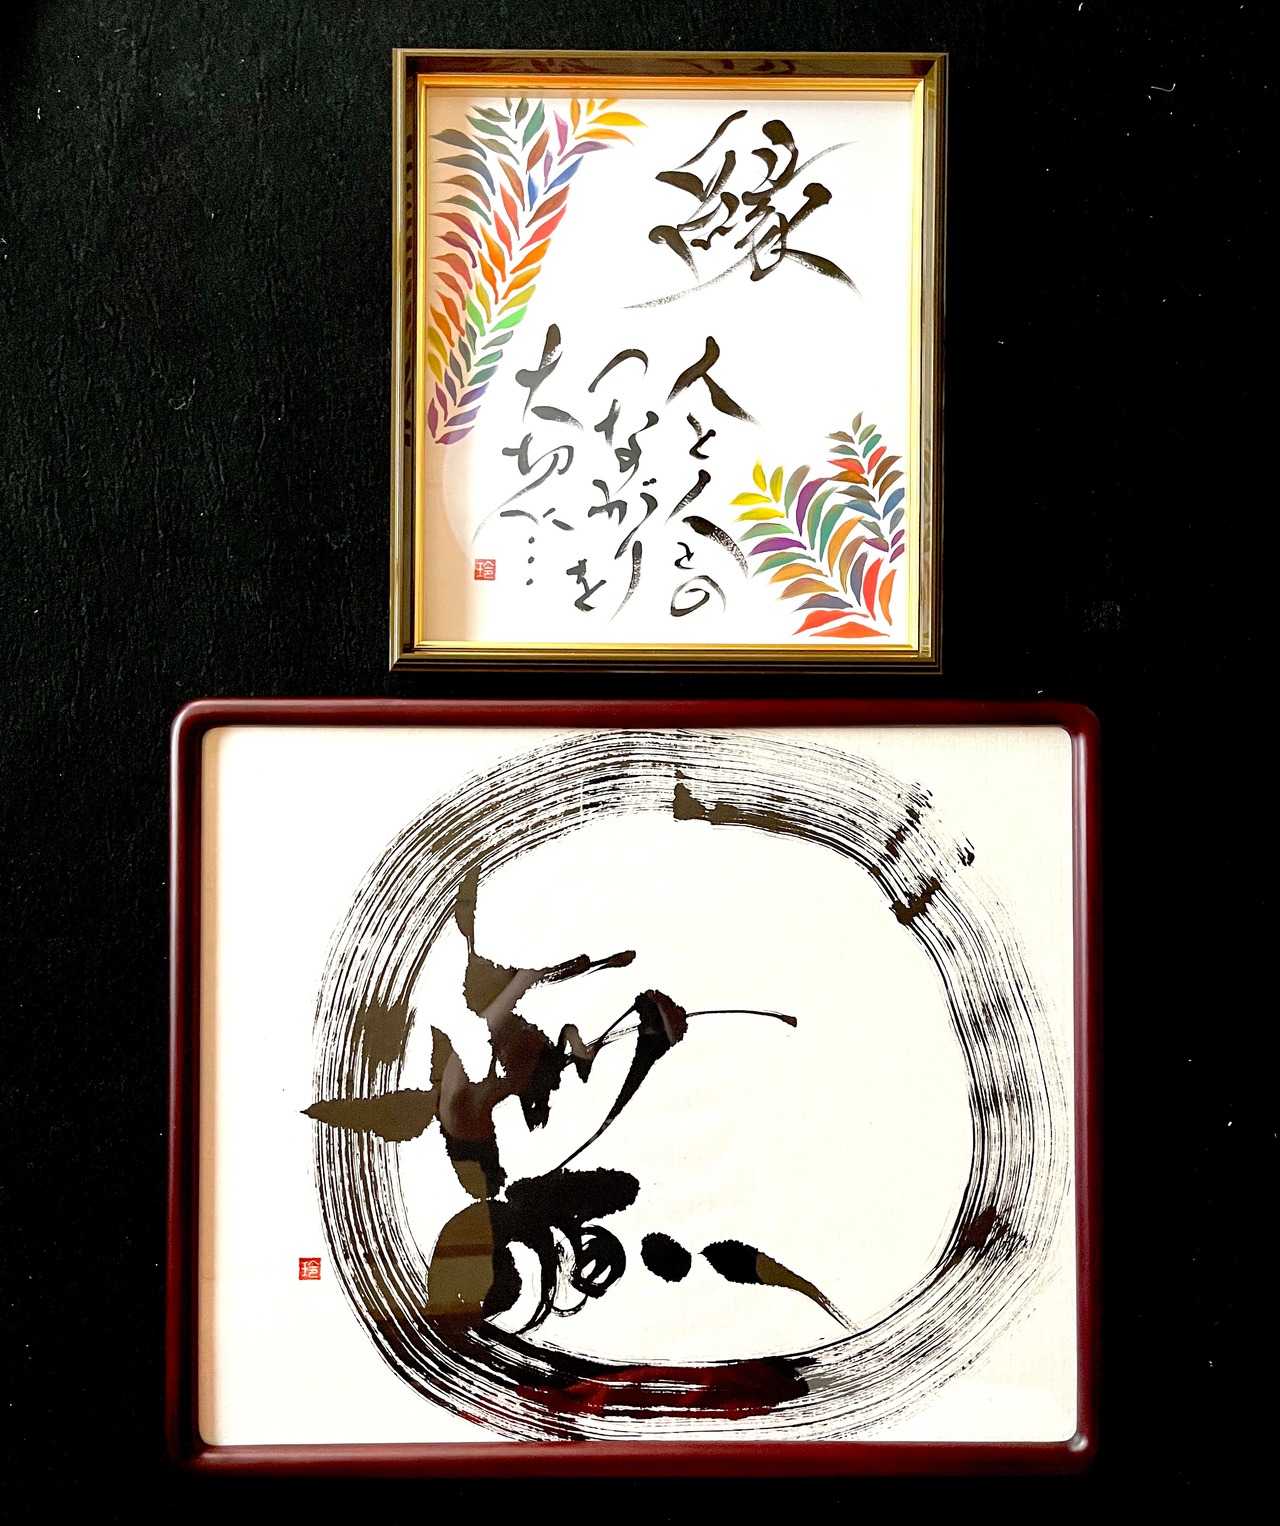 縁
人と人との
つながりを
大切に…
玲
玲